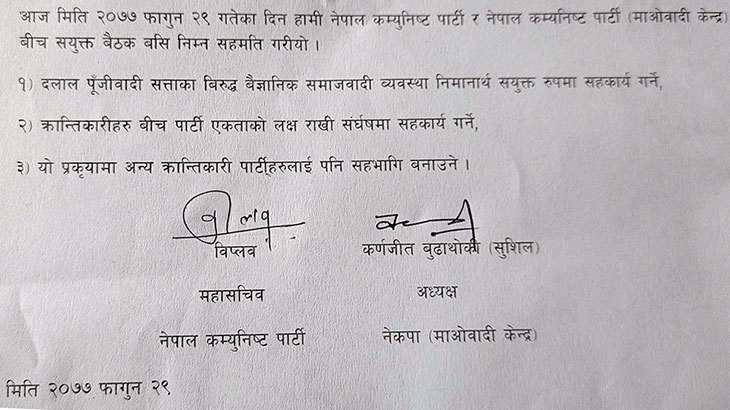 आज मिति २०७७ फागुन २९ गतेका दिन हामी नेपाल कम्युनिष्ट पार्टी र नेपाल कम्यनिष्ट पार्टी (माओवादी केन्द्र)
बीच सयुक्त बैठक बसि निम्न सहमति गरीयो ।
१) दलाल पूँजीवादी सत्ताका विरुद्ध बैज्ञानिक समाजवादी व्यवस्था निमानार्थ सयुक्त रुपमा सहकार्य गर्ने,
२) क्रान्तिकारीहरु बीच पार्टी एकताको लक्ष राखी संर्घषमा सहकार्य गर्ने,
३) यो प्रकृयामा अन्य क्रान्तिकारी पार्टीहरुलाई पनि सहभागि बनाउने ।
विप्लव कर्णजीत बुढाथोकी (सुशिल)
महासचिव अध्यक्ष
नेपाल कम्युनिष्ट पार्टी नेकपा (माओवादी केन्द्र)
मिति २०७७ फागुन २९